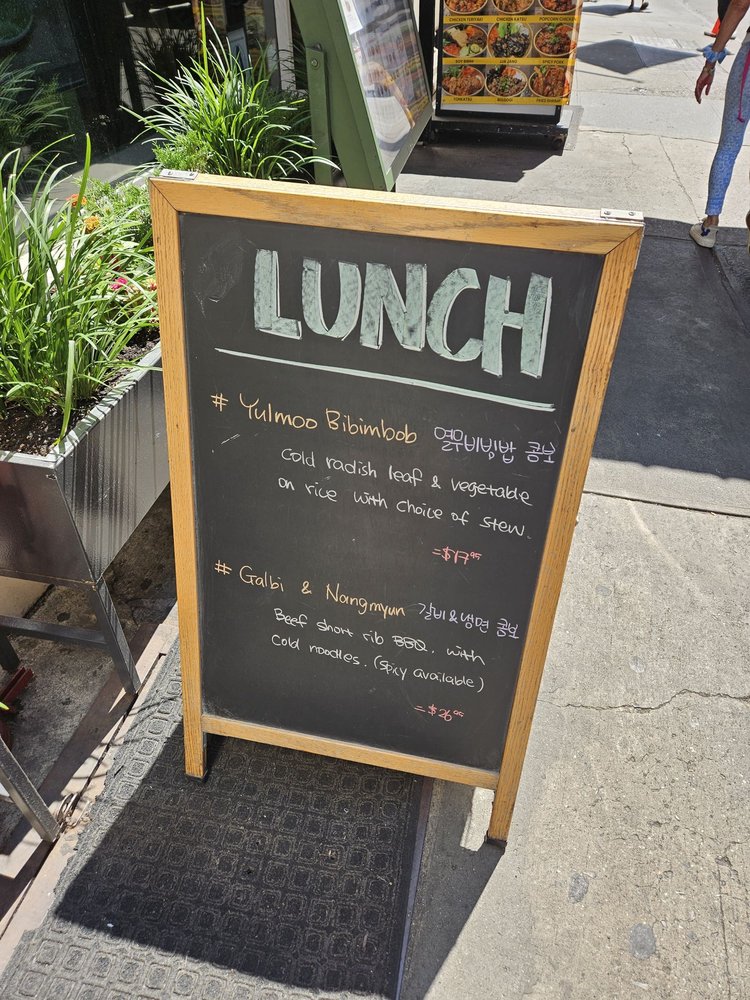 CHICKEN TERIYAKI CHICKEN KATSU POPCORN CHICKEN
SPICY PORK
BULGOGI
LUNCH
# Yulmoo Bibimbob 열무비빔밥 콤보
Cold radish leaf & vegetable
on rice with choice of stew.
= $17.95
# Galbi & Nangmyun 갈비&냉면 콤보
Beef short rib BBQ. with
Cold noodles. (Spicy available)
= $26.95